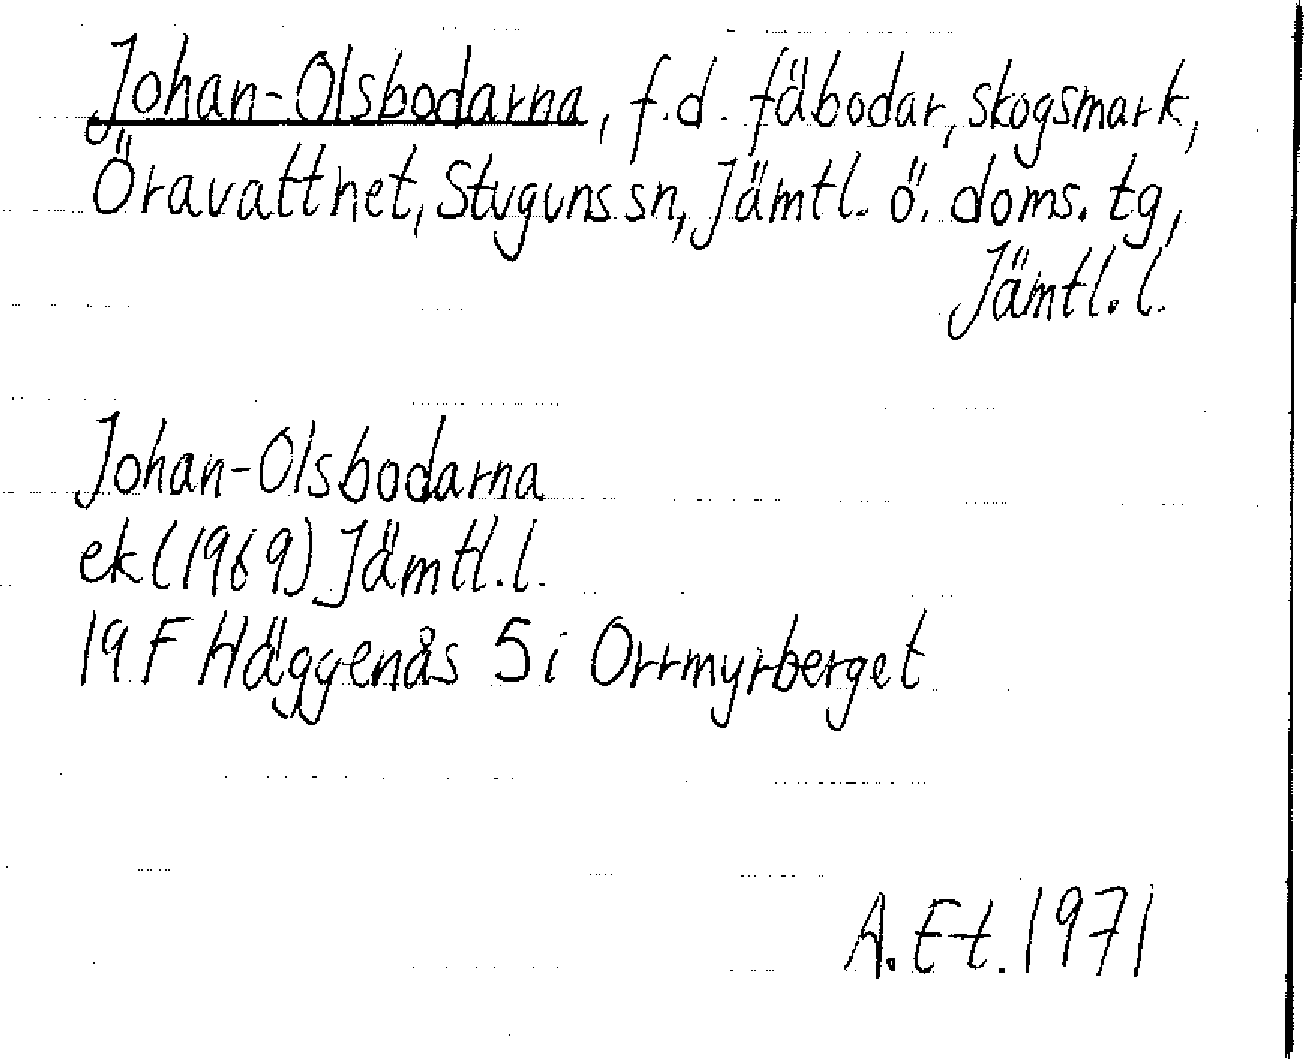 Johan-Olsbodarna, f.d. fäbodar, skogsmark,
Öravattnet, Stuguns sn, Jämtl. ö. doms. tg,
Jämtl. l.
Johan-Olsbodarna
ek (1969) Jämtl. l.
19 F Häggenås 5 i Orrmyrberget
A. Et. 1971